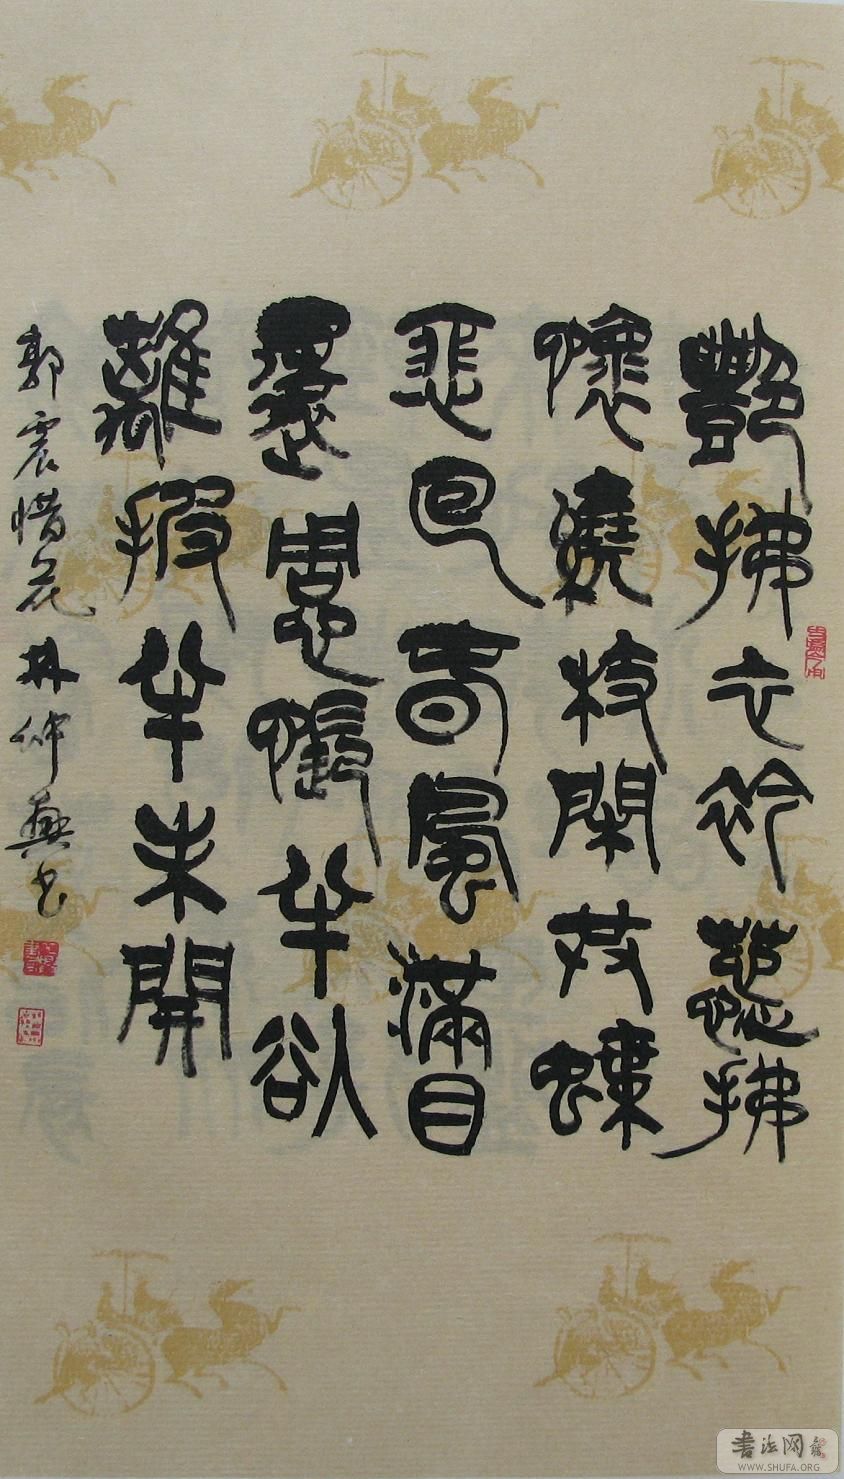 艷拂衣衿蕊拂
懷繞枝閑共蝶
悲回春風滿目
還惆悵半欲
離披半未開
郭震惜花 林仲興书
書法网
WWW.SHUFA.ORG